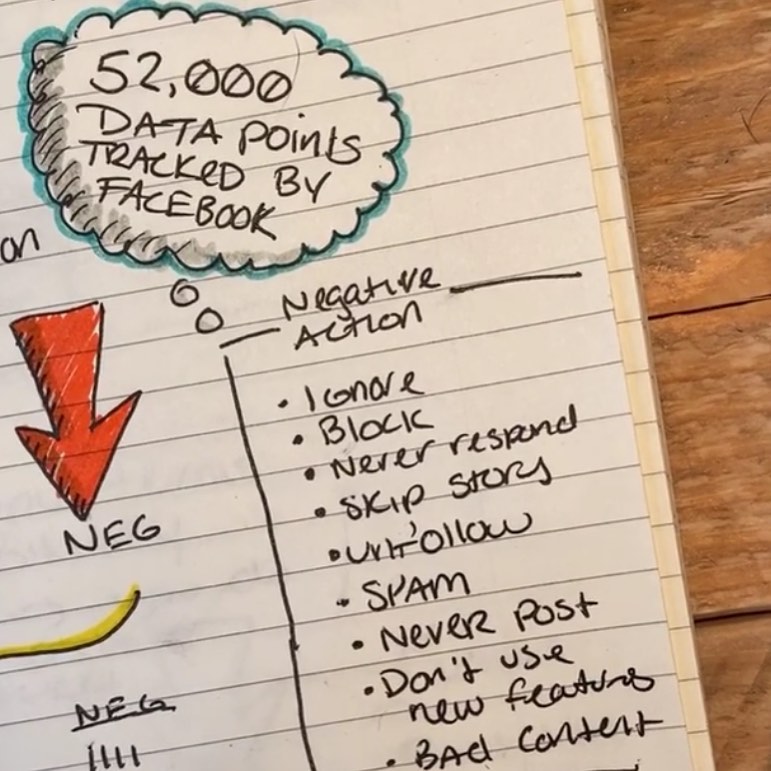 52,000
DATA POINTS
TRACKED BY
FACEBOOK
on
Negative
ACTION
• Ignore
• BLOCK
• Never respond
• SKIP STORY
• unfollow
• SPAM
• NEVER POST
• Don't use
new features
• BAD content
NEG
NEG
||||